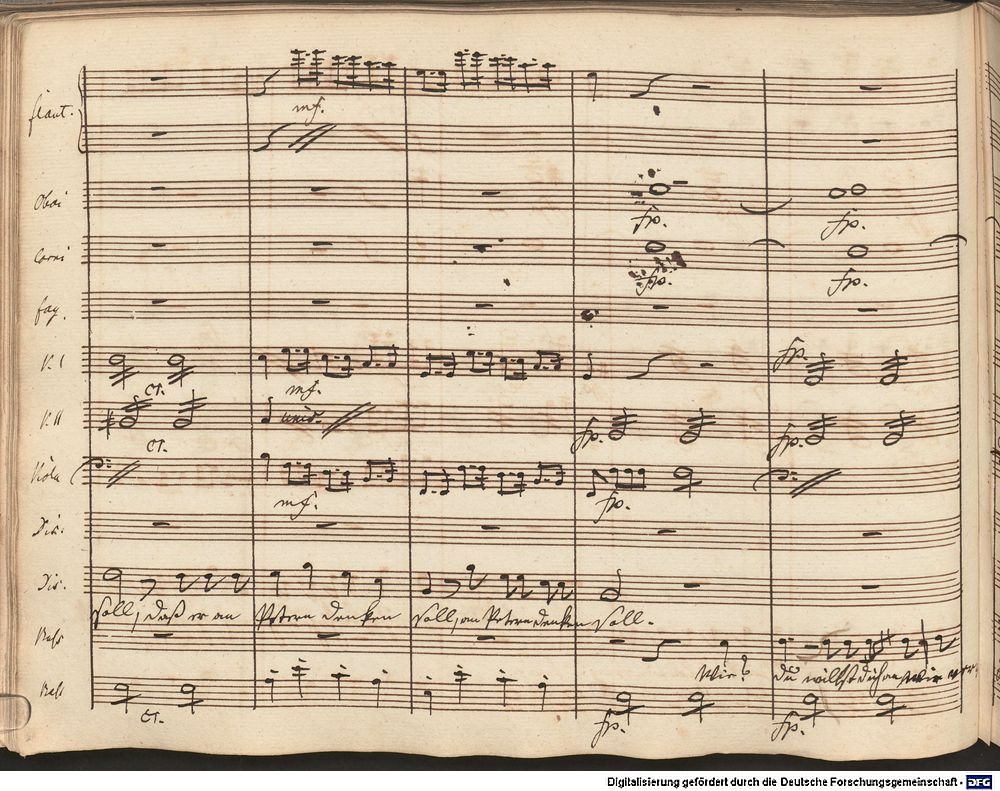 flaut.
mf.
Oboi
fp. fp.
Corni
fp. fp.
fag.
V. I
cr. mf. fp.
V. II
unis.
cr. fp. fp.
Viola
mf. fp.
Dis.
Dis.
soll, daß er an Petern denken soll, an Petern denken soll.
Baß
Wie? du willst dich an mir
Baß
cr. fp. fp.
Digitalisierung gefördert durch die Deutsche Forschungsgemeinschaft - DFG